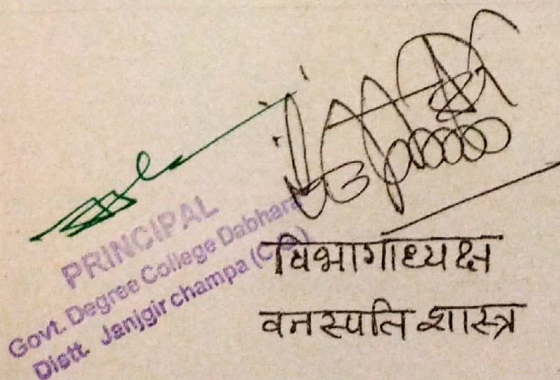 PRINCIPAL
Govt. Degree College Dabhara
Distt. Janjgir champa (C.G.)
विभागाध्यक्ष
वनस्पति शास्त्र